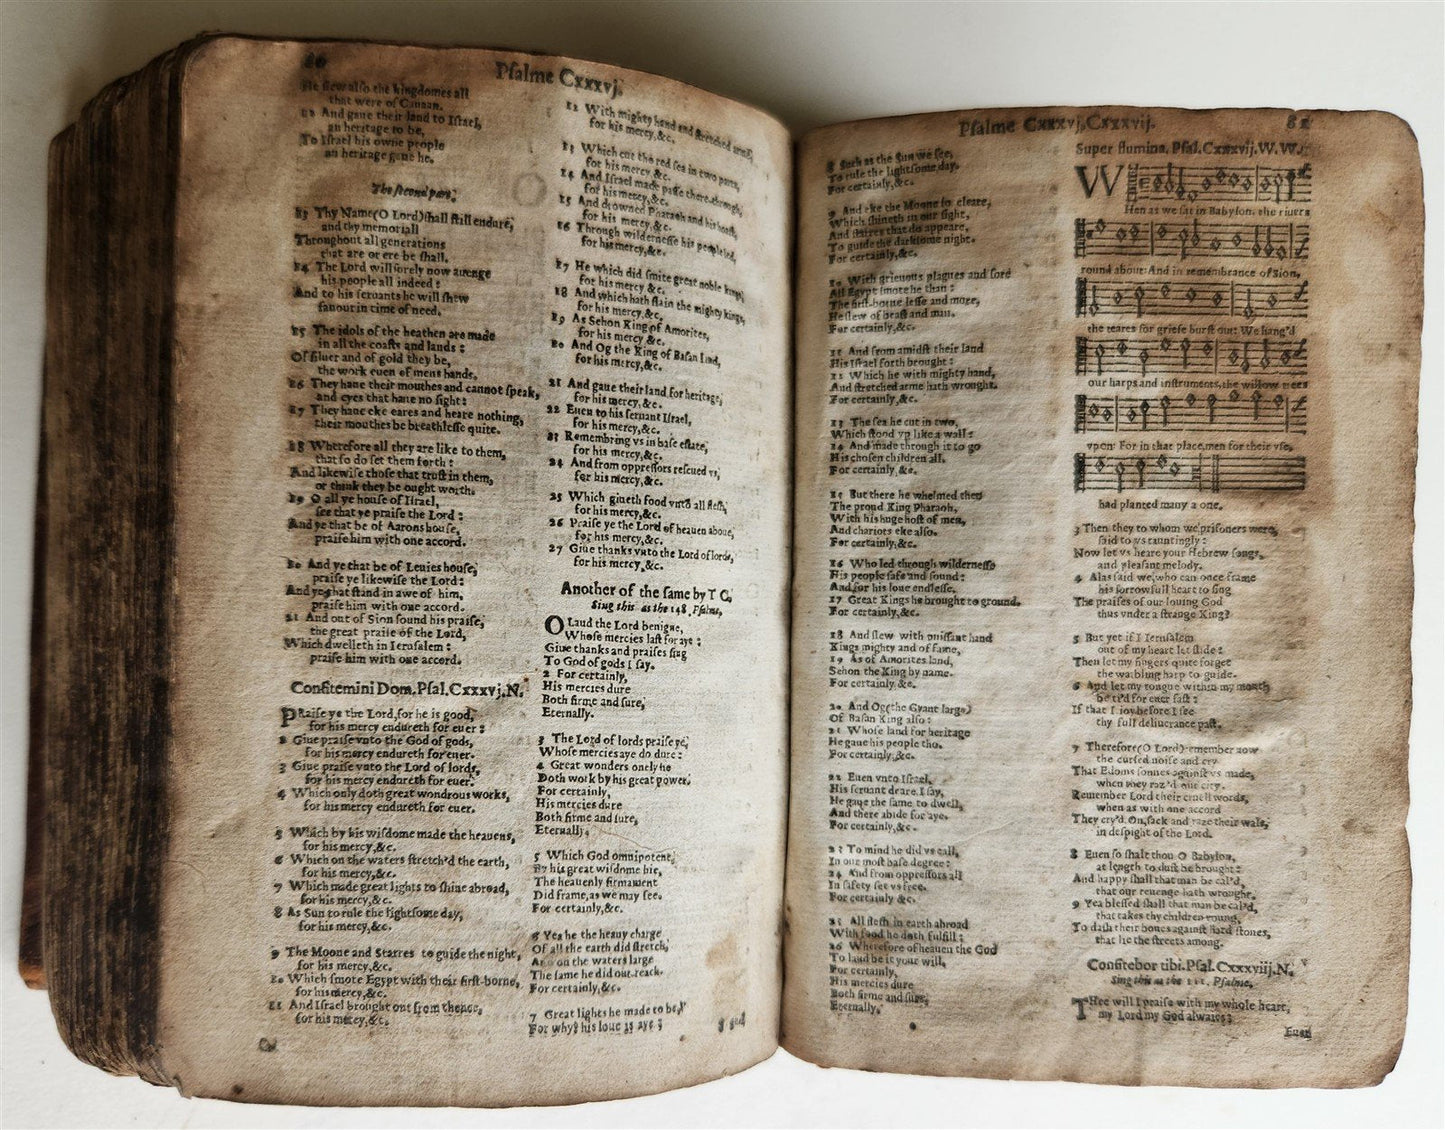 80
Psalme Cxxxvj.
He slew also the kingdomes all
that were of Canaan.
12 And gaue their land to Israel,
an heritage to be,
To Israel his owne people
an heritage gaue he.
The second part.
13 Thy Name(O Lord)shall still endure,
and thy memoriall
Throughout all generations
that are or ere be shall.
14 The Lord will surely now auenge
his people all indeed :
And to his seruants he will shew
fauour in time of need.
15 The idols of the heathen are made
in all the coasts and lands :
Of siluer and of gold they be,
the work euen of mens hands.
16 They haue their mouthes and cannot speak,
and eyes that haue no sight :
17 They haue eke eares and heare nothing,
their mouthes be breathlesse quite.
18 Wherefore all they are like to them,
that so do set them forth :
And likewise those that trust in them,
or think they be ought worth.
19 O all ye house of Israel,
see that ye praise the Lord :
And ye that be of Aarons house,
praise him with one accord.
20 And ye that be of Leuies house,
praise ye likewise the Lord:
And ye that stand in awe of him,
praise him with one accord.
21 And out of Sion sound his praise,
the great praise of the Lord,
Which dwelleth in Ierusalem :
praise him with one accord.
Confitemini Dom.Psal.Cxxxvj.N.
PRaise ye the Lord,for he is good,
for his mercy endureth for euer :
2 Giue praise vnto the God of gods,
for his mercy endureth for euer.
3 Giue praise vnto the Lord of lords,
for his mercy endureth for euer.
4 Which only doth great wondrous works,
for his mercy endureth for euer.
5 Which by his wisdome made the heauens,
for his mercy,&c.
6 Which on the waters stretch'd the earth,
for his mercy,&c.
7 Which made great lights to shine abroad,
for his mercy,&c.
8 As Sun to rule the lightsome day,
for his mercy,&c.
9 The Moone and Starres to guide the night,
for his mercy,&c.
10 Which smote Egypt with their first-borne,
for his mercy,&c.
11 And Israel brought out from thence,
for his mercy,&c.
12 With mighty hand and stretched arme,
for his mercy,&c.
13 Which cut the red sea in two parts,
for his mercy,&c.
14 And Israel made passe there-through,
for his mercy,&c.
15 And drowned Pharaoh and his hoste,
for his mercy,&c.
16 Through wildernesse his people led,
for his mercy,&c.
17 He which did smite great noble kings,
for his mercy &c.
18 And which hath slain the mighty kings,
for his mercy,&c.
19 As Sehon King of Amorites,
for his mercy &c.
20 And Og the King of Basan land,
for his mercy,&c.
21 And gaue their land for heritage,
for his mercy,&c.
22 Euen to his seruant Israel,
for his mercy,&c.
23 Remembring vs in base estate,
for his mercy,&c.
24 And from oppressors rescued vs,
for his mercy,&c.
25 Which giueth food vnto all flesh,
for his mercy,&c.
26 Praise ye the Lord of heauen aboue,
for his mercy,&c.
27 Giue thanks vnto the Lord of lords,
for his mercy,&c.
Another of the same by T C.
Sing this as the 148. Psalme,
O Laud the Lord benigne,
Whose mercies last for aye :
Giue thanks and praises sing
To God of gods I say.
2 For certainly,
His mercies dure
Both firme and sure,
Eternally.
3 The Lord of lords praise ye,
Whose mercies aye do dure :
4 Great wonders onely he
Doth work by his great power.
For certainly,
His mercies dure
Both firme and sure,
Eternally.
5 Which God omnipotent,
By his great wisdome hie,
The heauenly firmament
Did frame,as we may see.
For certainly,&c.
6 Yea he the heauy charge
Of all the earth did stretch,
And on the waters large
The same he did out-reach.
For certainly,&c.
7 Great lights he made to be,
For why? his loue is aye :
Psalme Cxxxvj,Cxxxvij.
81
8 Such as the Sun we see,
To rule the lightsome day.
For certainly,&c.
9 And eke the Moone so cleare,
Which shineth in our sight,
And starres that do appeare,
To guide the darksome night.
For certainly,&c.
10 With grieuous plagues and sore
All Egypt smote he than :
The first-borne lesse and more,
He slew of beast and man.
For certainly,&c.
11 And from amidst their land
His Israel forth brought :
12 Which he with mighty hand,
And stretched arme hath wrought.
For certainly,&c.
13 The sea he cut in two,
Which stood vp like a wall :
14 And made through it to go
His chosen children all.
For certainly,&c.
15 But there he whelmed then
The proud King Pharaoh,
With his huge host of men,
And chariots eke also.
For certainly,&c.
16 Who led through wildernesse
His people safe and sound :
And for his loue endlesse.
17 Great Kings he brought to ground.
For certainly,&c.
18 And slew with puissant hand
Kings mighty and of fame,
19 As of Amorites land,
Sehon the King by name.
For certainly,&c.
20 And Og(the Gyant large)
Of Basan King also :
21 Whose land for heritage
He gaue his people tho.
For certainly,&c.
22 Euen vnto Israel,
His seruant deare I say,
He gaue the same to dwell,
And there abide for aye.
For certainly,&c.
23 To mind he did vs call,
In our most base degree :
24 And from oppressors all
In safety set vs free.
For certainly &c.
25 All flesh in earth abroad
With food he doth fulfill :
26 Wherefore of heauen the God
To laud be it your will.
For certainly,
His mercies dure
Both firme and sure,
Eternally.
Super flumina. Psal.Cxxxvij.W.W.
WHen as we sat in Babylon, the riuers
round about: And in remembrance of Sion,
the teares for griefe burst out: We hang'd
our harps and instruments,the willow trees
vpon: For in that place,men for their vse,
had planted many a one.
3 Then they to whom we prisoners were,
said to vs tauntingly :
Now let vs heare your Hebrew songs,
and pleasant melody.
4 Alas said we,who can once frame
his sorrowfull heart to sing
The praises of our louing God
thus vnder a strange King?
5 But yet if I Ierusalem
out of my heart let slide :
Then let my fingers quite forget
the warbling harp to guide.
6 And let my tongue within my mouth
be ti'd for euer fast :
If that I ioy,before I see
thy full deliuerance past.
7 Therefore(O Lord)remember now
the cursed noise and cry
That Edoms sonnes against vs made,
when they raz'd our city.
Remember Lord their cruell words,
when as with one accord
They cry'd,On,sack and raze their wals,
in despight of the Lord.
8 Euen so shalt thou O Babylon,
at length to dust be brought :
And happy shall that man be cal'd,
that our reuenge hath wrought.
9 Yea blessed shall that man be cal'd,
that takes thy children young,
To dash their bones against hard stones,
that lie the streets among.
Confitebor tibi.Psal.Cxxxviij.N.
Sing this as the 111. Psalme,
THee will I praise with my whole heart,
my Lord my God alwaies :
Euen